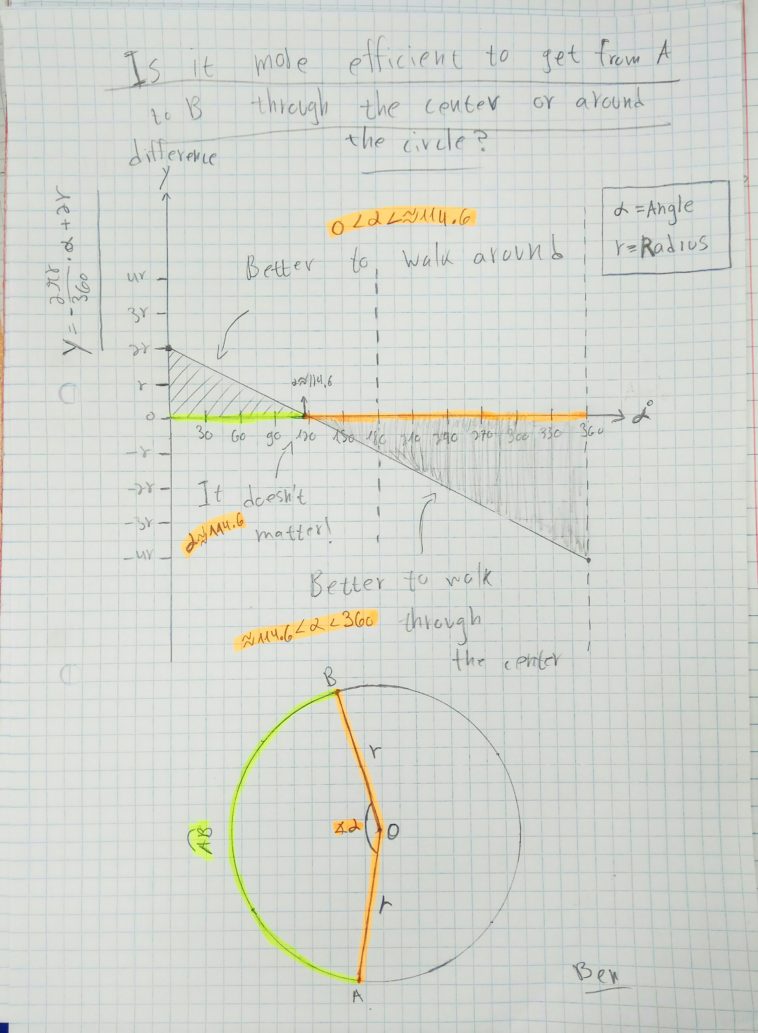 Is it more efficient to get from A
to B through the center or around
the circle?
difference
y
y = - 2πr/360 · α + 2r
0 < α < ≈114.6
α = Angle
r = Radius
Better to walk around
4r
3r
2r
r
0
-r
-2r
-3r
-4r
α≈114.6
30 60 90 120 150 180 210 240 270 300 330 360
α°
It doesn't
matter!
α≈114.6
Better to walk
through
the center
≈114.6 < α < 360
B
r
∡α
O
AB
r
A
Ben